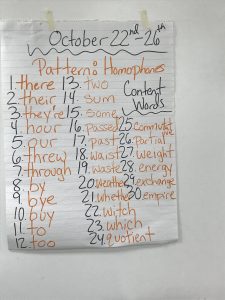 October 22nd-26th
Pattern: Homophones
1. there
2. their
3. they're
4. hour
5. our
6. threw
7. through
8. by
9. bye
10. buy
11. to
12. too
13. two
14. sum
15. some
16. passed
17. past
18. waist
19. waste
20. weather
21. whether
22. witch
23. which
24. quotient
Content
Words
25.
26. Partial
27. weight
28. energy
29. exchange
30. empire